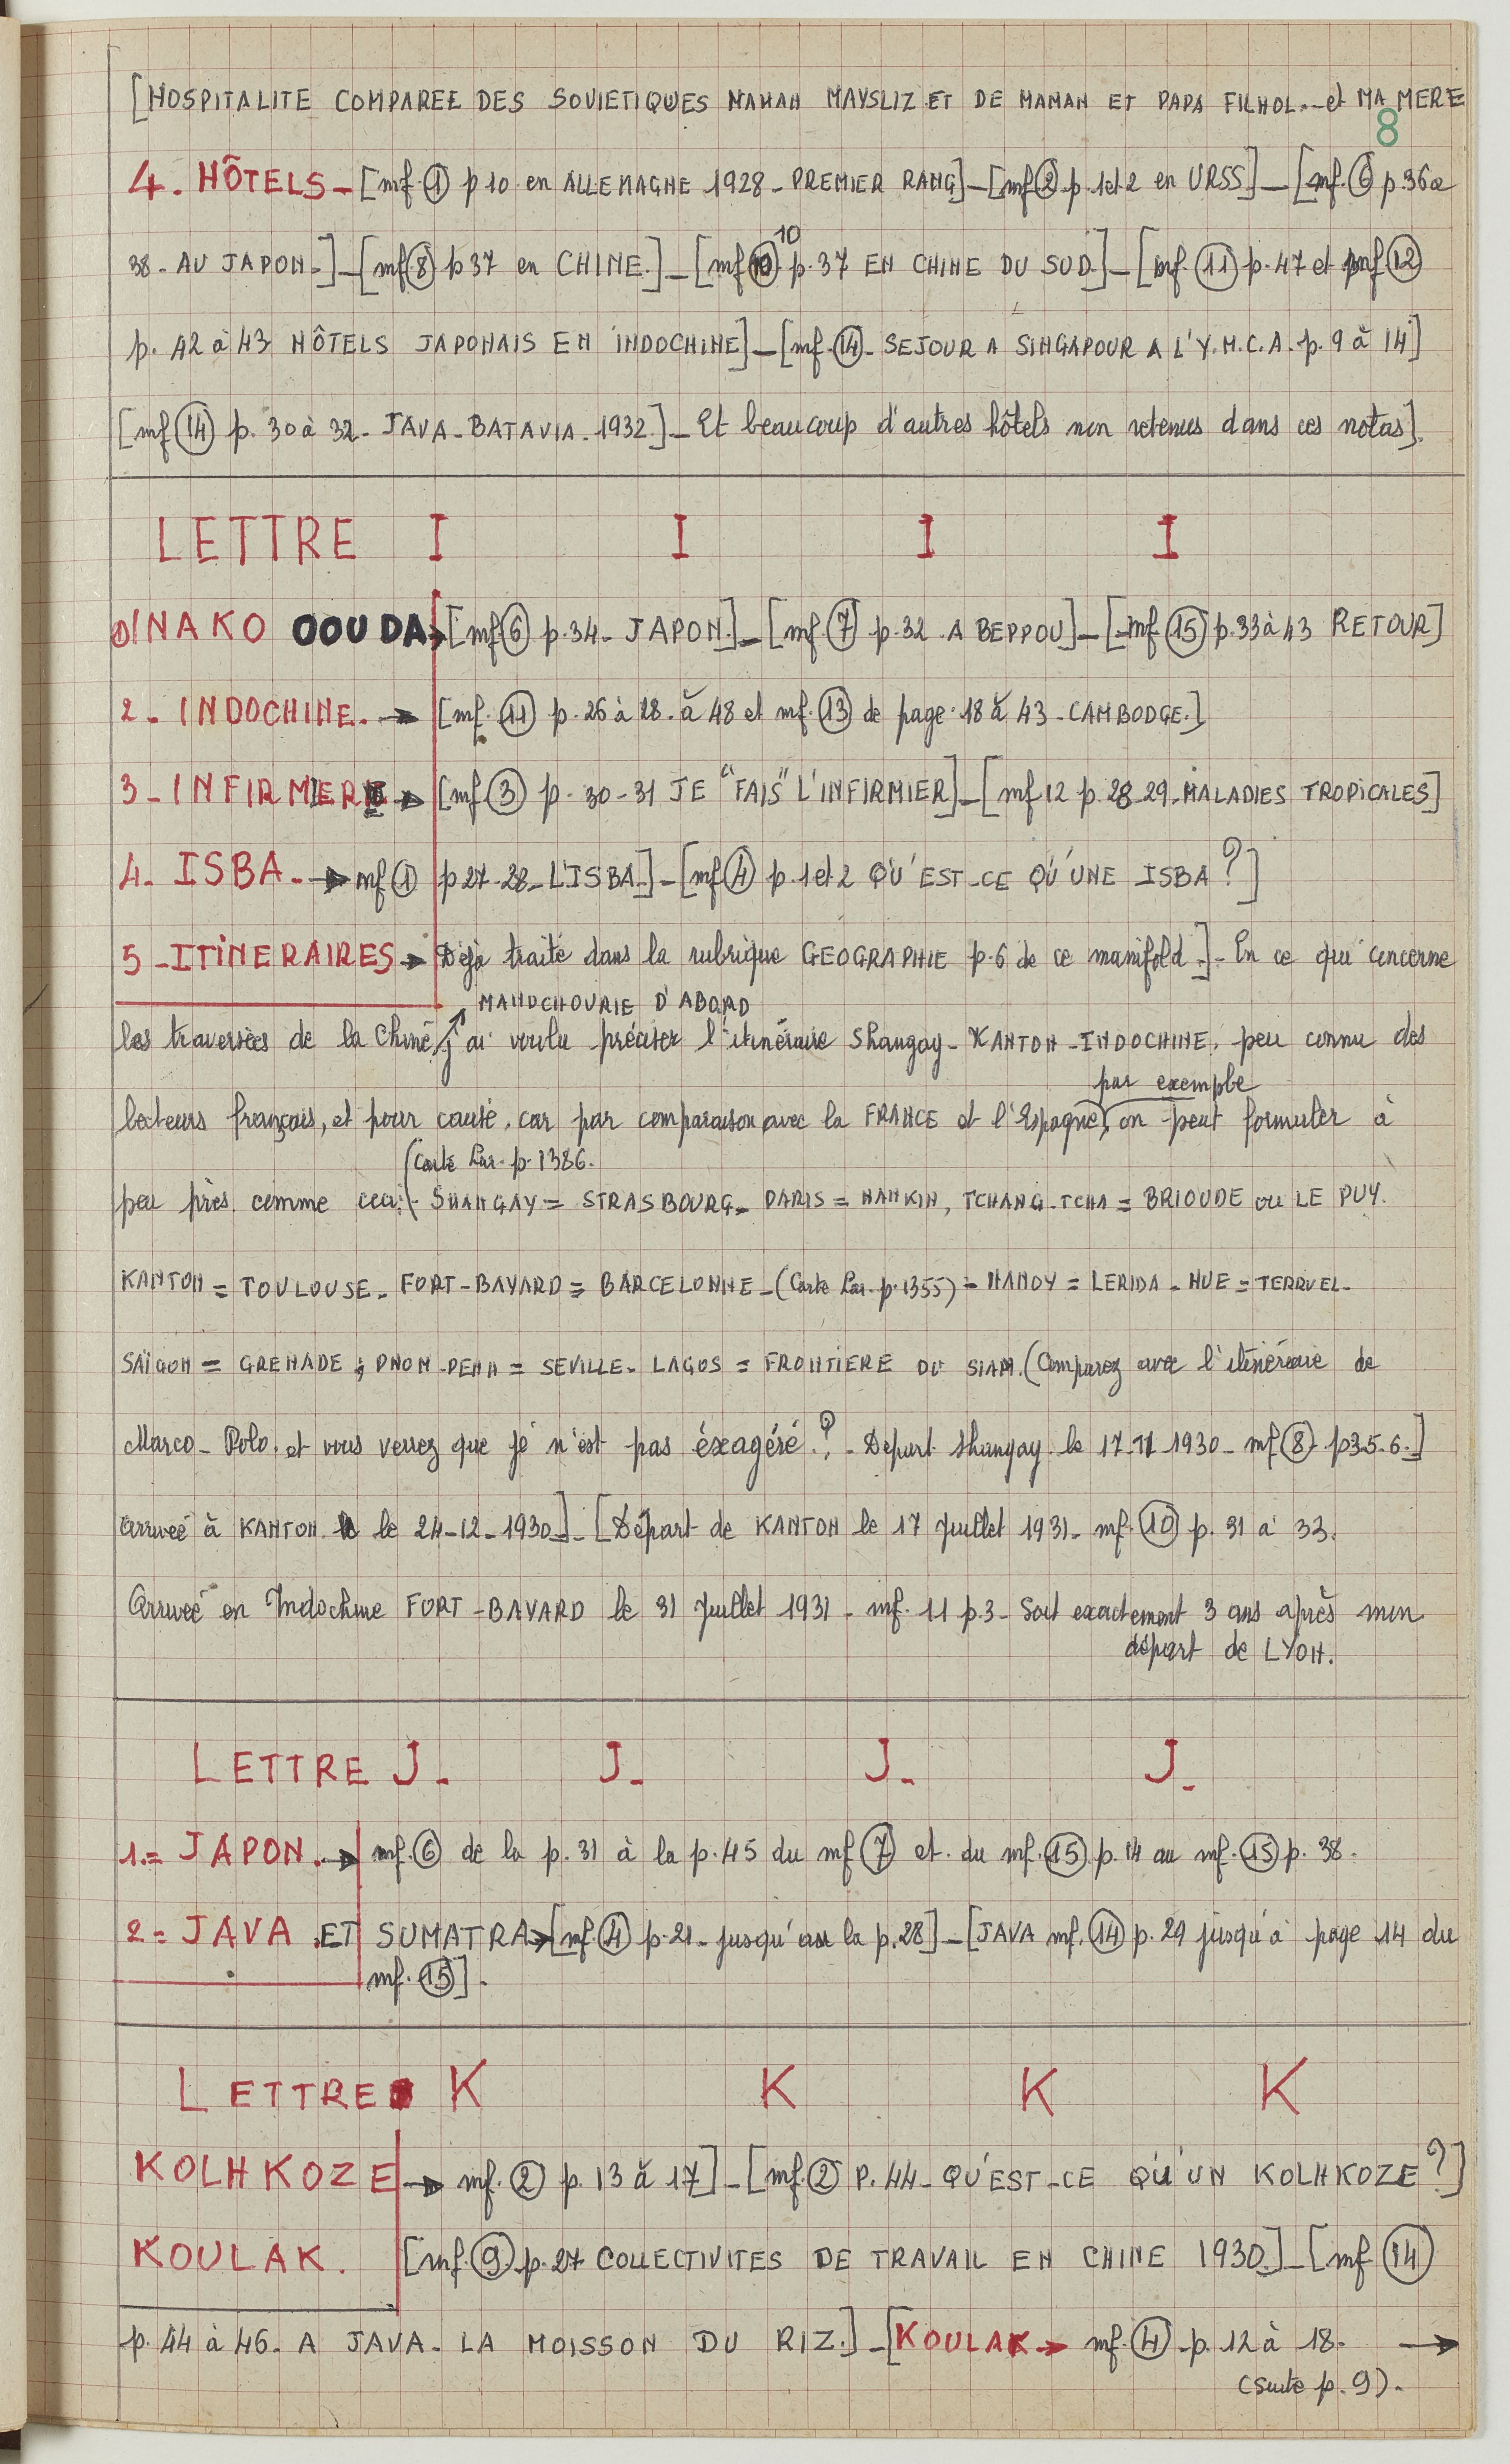 [HOSPITALITE COMPAREE DES SOVIETIQUES MAMAN MAYSLIZ ET DE MAMAN ET PAPA FILHOL.-et MA MERE
8
4. HÔTELS - [mf. ① p 10 en ALLEMAGNE 1928 - PREMIER RANG] - [mf ② p. 1 et 2 en URSS] - [mf. ⑥ p. 36 a
38 - AU JAPON.] - [mf. ⑧ p 37 en CHINE.] - [mf ⑩ 10 p. 37 EN CHINE DU SUD] - [mf. ⑪ p. 47 et mf ⑫
p. 42 à 43 HÔTELS JAPONAIS EN INDOCHINE] - [mf. ⑭ - SEJOUR A SINGAPOUR A L'Y.M.C.A. p. 9 à 14]
[mf ⑭ p. 30 à 32 - JAVA - BATAVIA - 1932.] - Et beaucoup d'autres hôtels non retenus dans ces notas].
LETTRE I I I I
① INAKO OOUDA → [mf ⑥ p. 34 - JAPON.] - [mf. ⑦ p. 32 A BEPPOU] - [mf ⑮ p. 33 à 43 RETOUR]
2 - INDOCHINE. → [mf. ⑪ p. 26 à 28 - à 48 et mf. ⑬ de page 18 à 43 - CAMBODGE.]
3 - INFIRMIER → [mf ③ p. 30 - 31 JE "FAIS" L'INFIRMIER] - [mf 12 p. 28-29 - MALADIES TROPICALES]
4 - ISBA. → mf ① p 27-28 - L'ISBA.] - [mf ④ p. 1 et 2 QU'EST-CE QU'UNE ISBA ?]
5 - ITINERAIRES → Déjà traité dans la rubrique GEOGRAPHIE p. 6 de ce manifold.] - En ce qui concerne
MANDCHOURIE D'ABORD
les traversées de la Chine, j'ai voulu préciser l'itinéraire Shangay - KANTON - INDOCHINE, peu connu des
par exemple
lecteurs français, et pour cause, car par comparaison avec la FRANCE et l'Espagne, on peut formuler à
(Carte Lar. p. 1386.
peu près comme ceci : SHANGAY = STRASBOURG - PARIS = NANKIN, TCHANG-TCHA = BRIOUDE ou LE PUY.
KANTON = TOULOUSE - FORT-BAYARD = BARCELONNE - (Carte Lar. p. 1355) - HANOY = LERIDA - HUE = TERRUEL -
SAÏGON = GRENADE ; PNOM-PENH = SEVILLE - LAGOS = FRONTIERE DU SIAM. (Comparez avec l'itinéraire de
Marco-Polo, et vous verrez que je n'est pas éxagéré.? - Départ Shangay le 17-11-1930 - mf ⑧ p 3.5.6.]
arrivée à KANTON le 24-12-1930.] - [Départ de KANTON le 17 Juillet 1931 - mf. ⑩ p. 31 à 33.
Arrivée en Indochine FORT-BAYARD le 31 Juillet 1931 - mf. 11 p. 3 - Soit exactement 3 ans après mon
départ de LYON.
LETTRE J - J - J - J -
1. = JAPON. → mf. ⑥ de la p. 31 à la p. 45 du mf ⑦ et du mf. ⑮ p. 14 au mf. ⑮ p. 38.
2 = JAVA ET SUMATRA → [mf ④ p. 21 - jusqu'au la p. 28] - [JAVA mf. ⑭ p. 29 jusqu'à page 14 du
mf. ⑮].
LETTRE K K K K
KOLHKOZE → mf. ② p. 13 à 17] - [mf. ② P. 44 - QU'EST-CE QU'UN KOLHKOZE ?]
KOULAK. [mf. ⑨ p. 27 COLLECTIVITES DE TRAVAIL EN CHINE 1930.] - [mf ⑭
p. 44 à 46 - A JAVA - LA MOISSON DU RIZ.] - [KOULAK → mf. ④ p. 12 à 18. →
(suite p. 9).